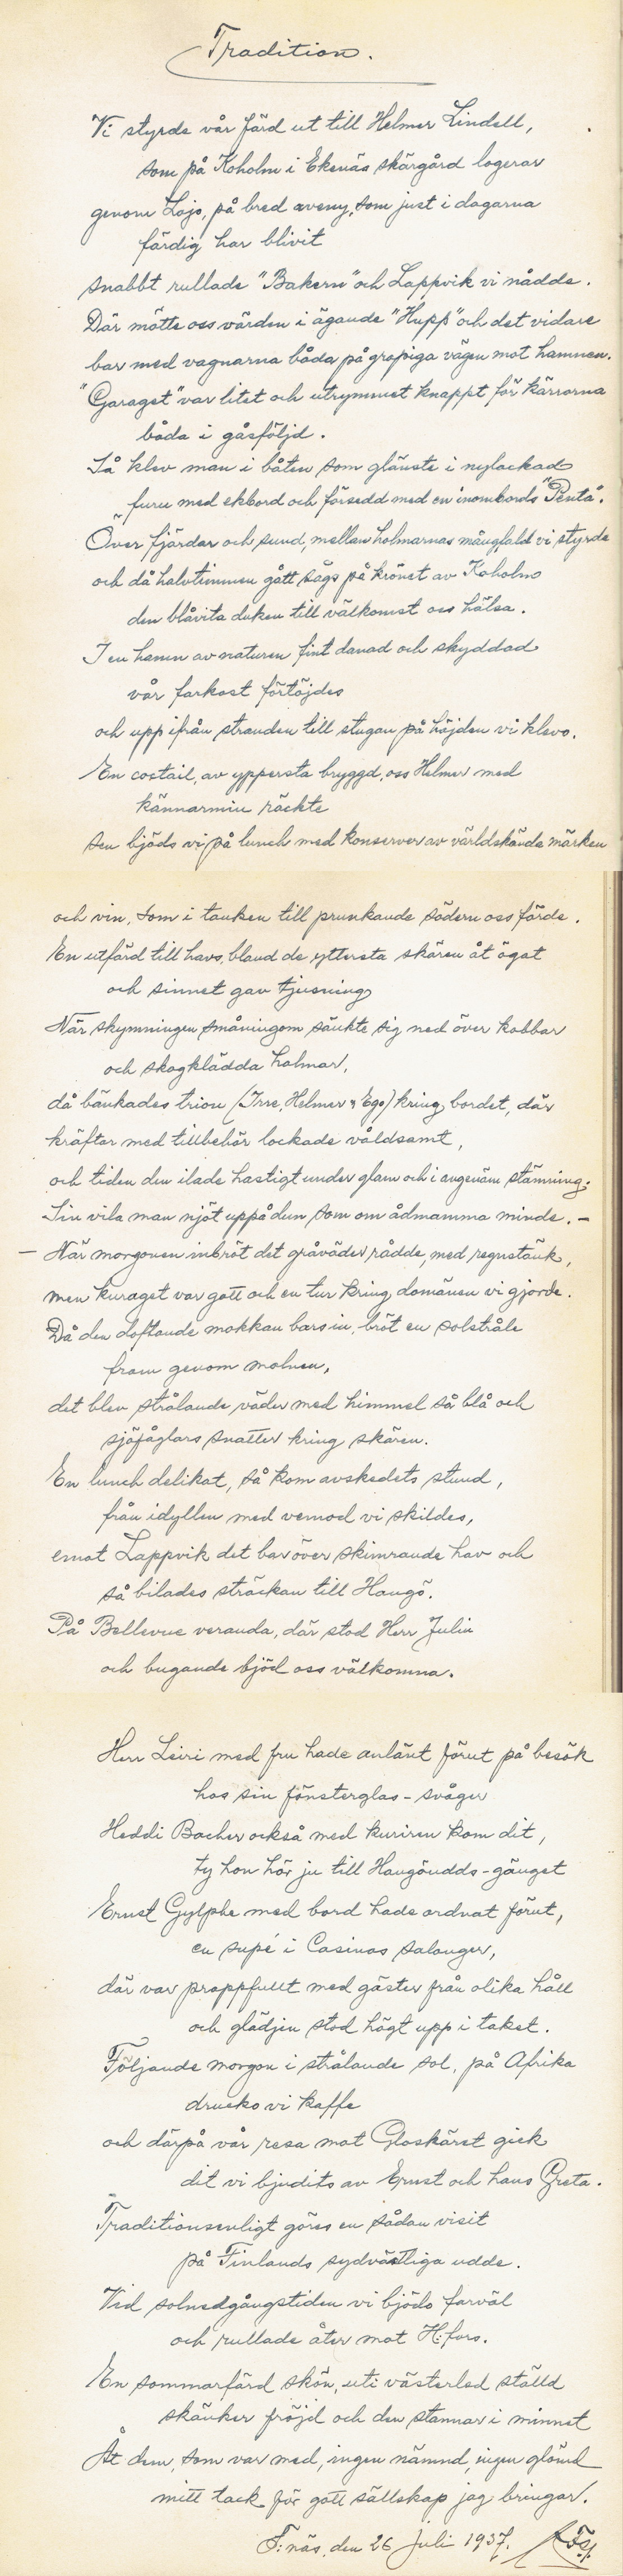 Tradition.
Vi styrde vår färd ut till Helmer Lindell,
som på Koholm i Ekenäs skärgård logerar
genom Lojo, på bred aveny, som just i dagarna
färdig har blivit
snabbt rullade "Bakern" och Lappvik vi nådde.
Där mötte oss värden i ägande "Hupp" och det vidare
bar med vagnarna båda på gropiga vägen mot hamnen.
"Garaget" var litet och utrymmet knappt för kärrorna
båda i gåsföljd.
Så klev man i båten som glänste i nylackad
furu med ekbord och försedd med en inombords "Penta".
Över fjärdar och sund, mellan holmarnas mångfald vi styrde
och då halvtimmen gått sågs på krönet av Koholm
den blåvita duken till välkomst oss hälsa.
I en hamn av naturen fint danad och skyddad
vår farkost förtöjdes
och upp ifrån stranden till stugan på höjden vi klevo.
En coctail, av yppersta bryggd, oss Helmer med
kännarmin räckte
sen bjöds vi på lunch med konserver av världskända märken
och vin, som i tanken till prunkande södern oss förde.
En utfärd till havs, bland de yttersta skären åt ögat
och sinnet gav tjusning
När skymningen småningom sänkte sig ned över kobbar
och skogklädda holmar,
då bänkades trion (Irre, Helmer & Ego) kring bordet, där
kräftor med tillbehör lockade våldsamt,
och tiden den ilade hastigt under glam och i angenäm stämning.
Sin vila man njöt uppå dun som om ådmamma minde. –
– När morgonen inbröt det gråväder rådde, med regnstänk,
men kuraget var gott och en tur kring domänen vi gjorde.
Då den doftande mokkan bars in, bröt en solstråle
fram genom molnen,
det blev strålande väder med himmel så blå och
sjöfåglars snatter kring skären.
En lunch delikat, så kom avskedets stund,
från idyllen med vemod vi skildes,
emot Lappvik det bar över skimrande hav och
så bilades sträckan till Hangö.
På Bellevue veranda, där stod Herr Julin
och bugande bjöd oss välkomna.
Herr Leiri med fru hade anlänt förut på besök
hos sin fönsterglas-svåger
Heddi Bacher också med kuriren kom dit,
ty hon hör ju till Hangöudds-gänget
Ernst Gylphe med bord hade ordnat förut,
en supé i Casinos salonger,
där var proppfullt med gäster från olika håll
och glädjen stod högt upp i taket.
Följande morgon i strålande sol, på Afrika
drucko vi kaffe
och därpå vår resa mot Gloskäret gick
dit vi bjudits av Ernst och hans Greta.
Traditionsenligt göres en sådan visit
på Finlands sydvästliga udde.
Vid solnedgångstiden vi bjödo farväl
och rullade åter mot H:fors.
En sommarfärd skön, uti västerled ställd
skänker fröjd och den stannar i minnet
Åt dem, som var med, ingen nämnd, ingen glömd
mitt tack för gott sällskap jag bringar.
F:näs, den 26 Juli 1937.